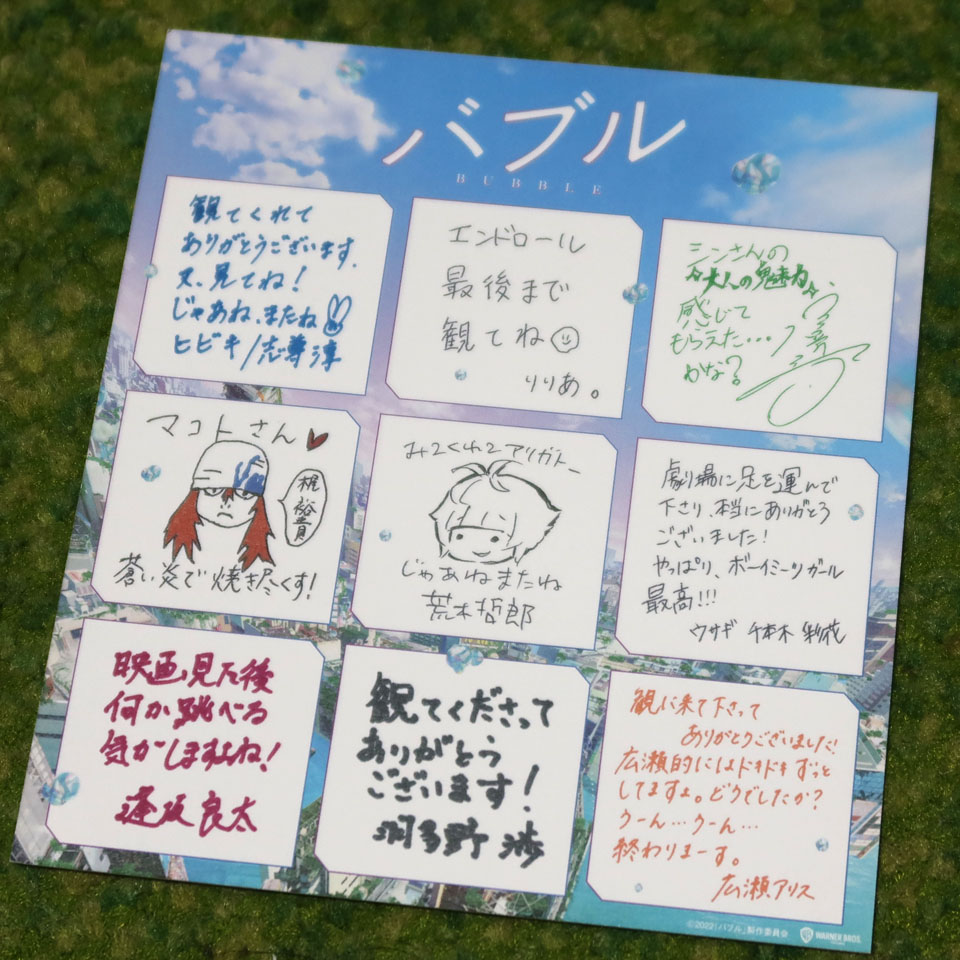 バブル
BUBBLE
観てくれて
ありがとうございます.
又、見てね!
じゃあね、またね
ヒビキ/志尊淳
エンドロール
最後まで
観てね
りりあ。
シンさんの
☆大人の魅力☆
感じて
もらえた…
かな?
マコトさん♥
梶裕貴
蒼い炎で焼き尽くす!
みてくれてアリガトー
じゃあねまたね
荒木哲郎
劇場に足を運んで
下さり、本当にありがとう
ございました!
やっぱり、ボーイミーツガール
最高!!!
ウサギ 千本木彩花
映画見た後
何か跳べる
気がしますよね!
逢坂良太
観てくださって
ありがとう
ございます!
羽多野渉
観に来て下さって
ありがとうございました!
広瀬的にはドキドキずっと
してますよ。どうでしたか?
うーん…うーん…
終わりまーす。
広瀬アリス
©2022「バブル」製作委員会
WARNER BROS.